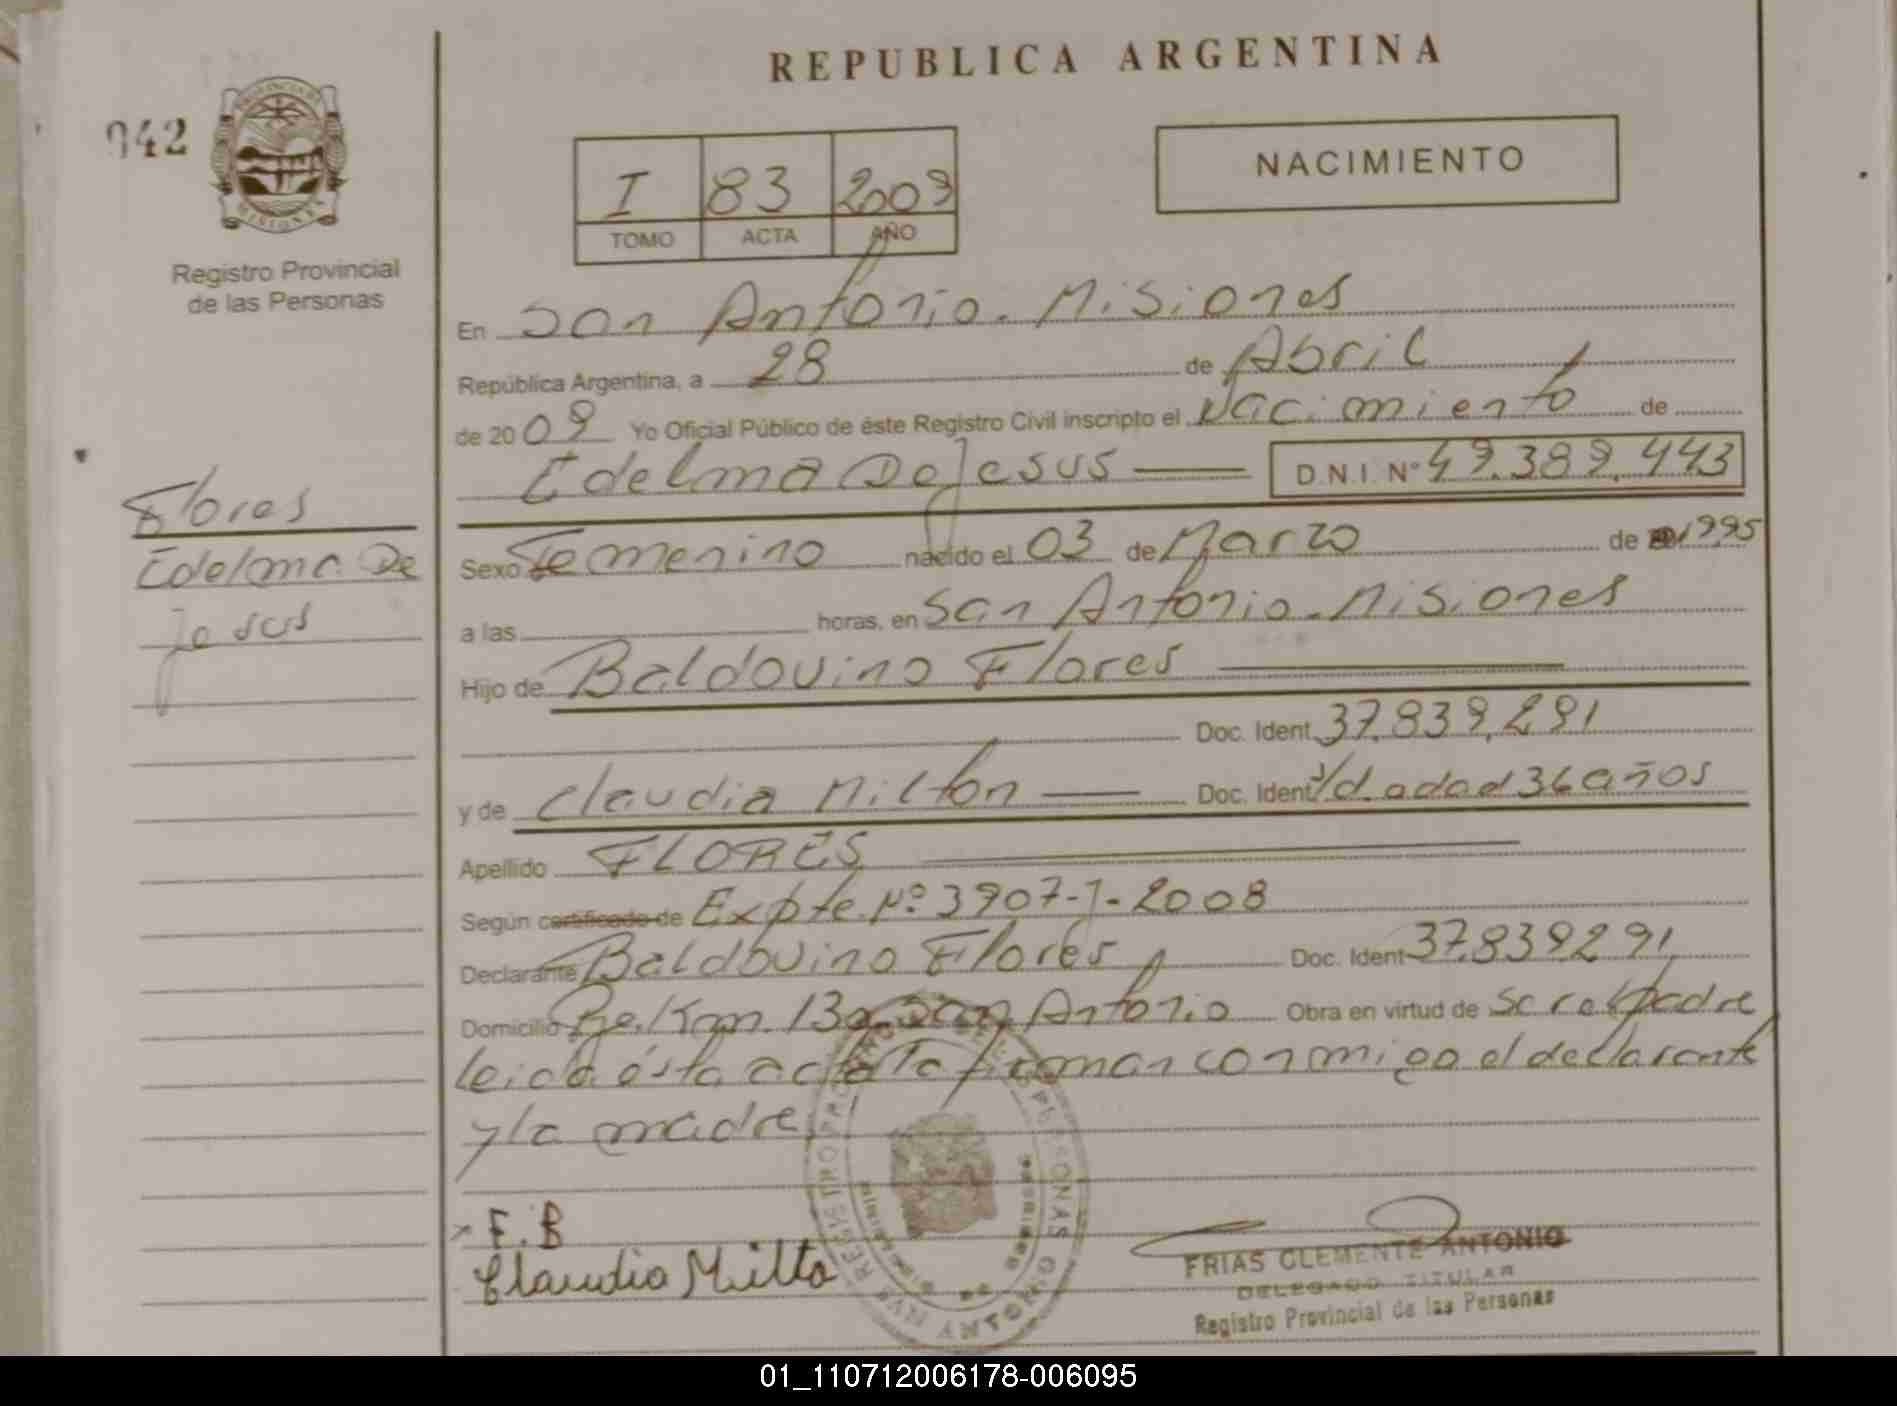 REPUBLICA ARGENTINA
042
PROVINCIA DE
MISIONES
Registro Provincial
de las Personas
I 83 2009
TOMO ACTA AÑO
NACIMIENTO
En San Antonio. Misiones
República Argentina, a 28 de Abril
de 20 09 Yo Oficial Público de éste Registro Civil inscripto el Nacimiento de
Edelma De Jesus D.N.I. Nº 49.389.443
Flores
Edelma De
Jesus
Sexo Femenino nacido el 03 de Marzo de 1995
a las horas, en San Antonio. Misiones
Hijo de Baldovino Flores
Doc. Ident. 37.839.291
y de Claudia Milton Doc. Ident. edad 36 años
Apellido FLORES
Según certificado de Expte. Nº 3907-J-2008
Declarante Baldovino Flores Doc. Ident. 37.839.291
Domicilio Km. 130 San Antonio Obra en virtud de padre
leida ésta acta la firman conmigo el declarante
y la madre
x F. B
Claudia Milto
FRIAS CLEMENTE ANTONIO
DELEGADO TITULAR
Registro Provincial de las Personas
01_110712006178-006095